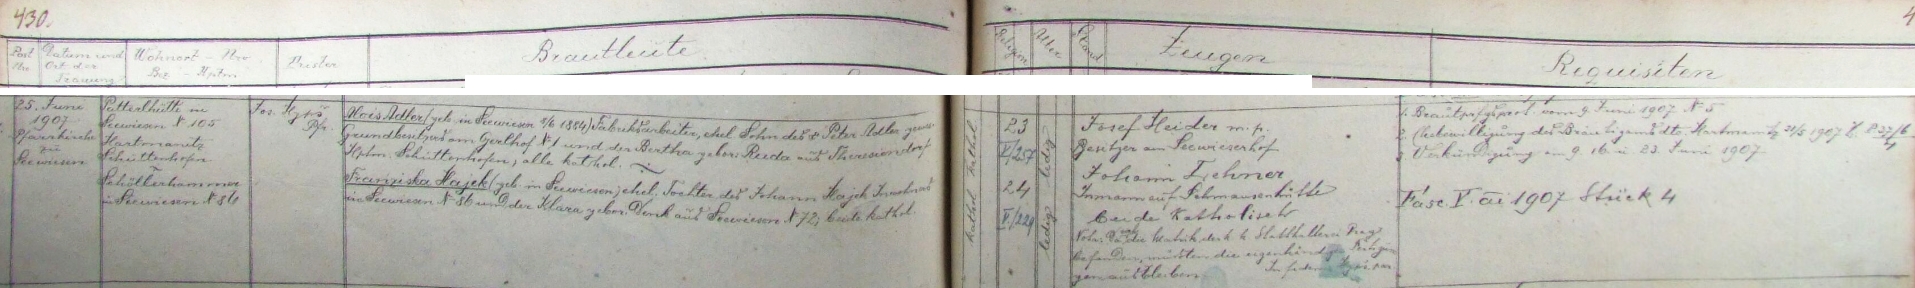 430.
Post Nro
Datum und Ort der Trauung
Wohnort - Nro Bez. - Hptm
Priester
Brautleute
Religion
Alter
Stand
Zeugen
Requisiten
4
25. Juni
1907
Pfarrkirche
zu
Seewiesen
Patterlhütte in
Seewiesen N 105
Hartmanitz
Schüttenhofen
Schöllerhammer
in Seewiesen N 86
Jos.
Pfr.
Alois Adler (geb. in Seewiesen 2/6 1884) Fabriksarbeiter, ehel. Sohn des † Peter Adler gewes.
Grundbesitzers am Gerlhof N 1 und der Bertha gebor. Reida aus Theresiendorf
Hptm. Schüttenhofen, alle kathol.
Franziska Hajek (geb. in Seewiesen) ehel. Tochter des Johann Hajek Inwohners
in Seewiesen N 86 und der Klara gebor. Denk aus Seewiesen N 72, beide kathol.
kathol. kathol.
23
V/257
24
V/229
ledig
ledig
Josef Heider m. p.
Besitzer am Seewieserhof
Johann Lehner
Inmann auf Schmausenhütte
beide katholisch
Nota: Da die Matrik der k. k. Statthalterei Prag
befanden, mußten die eigenhändigen
gen ausbleiben.
1. Brautprfgsprot. vom 9. Juni 1907 N 5
2. Ehebewilligung des Bräutigams dto. Hartmanitz 21/5 1907
3. Verkündigung am 9. 16. u. 23. Juni 1907
Fasc. V. ai 1907 Stück 4